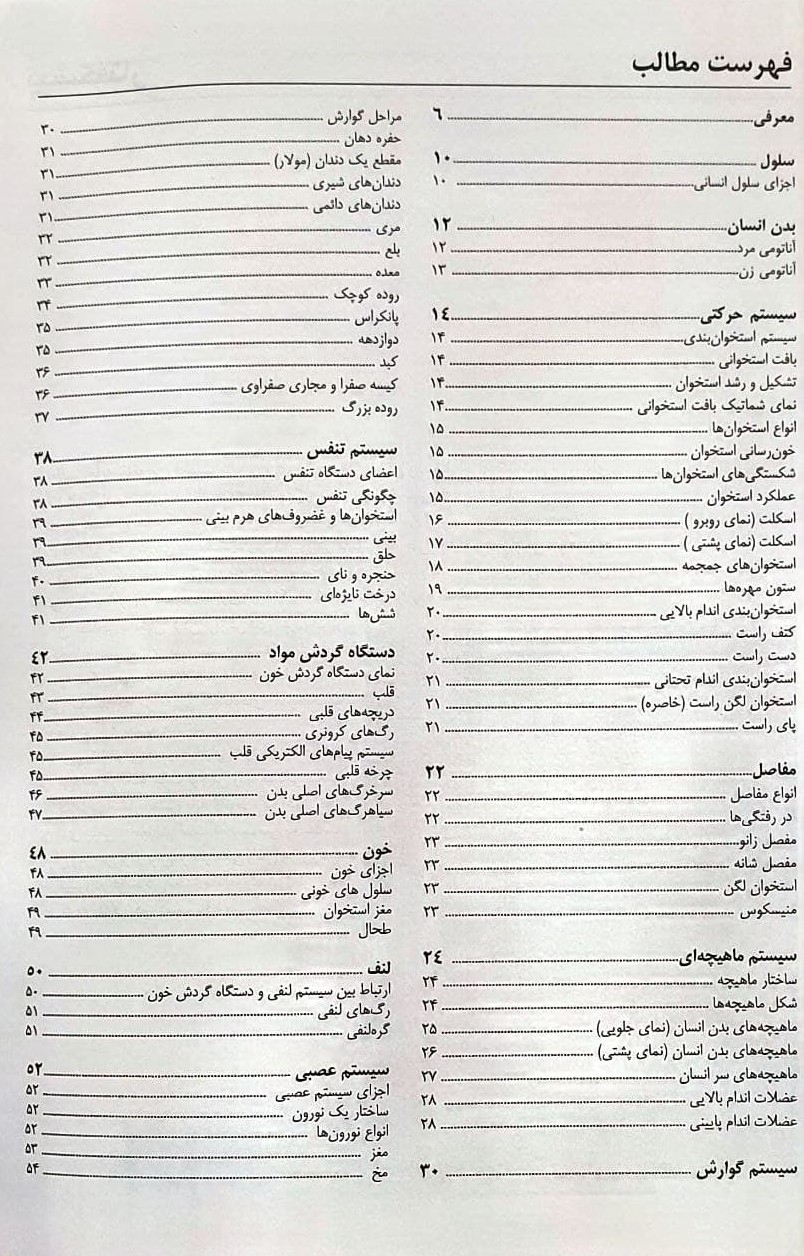 فهرست مطالب
معرفی ۶
سلول ۱۰
اجزای سلول انسانی ۱۰
بدن انسان ۱۲
آناتومی مرد ۱۲
آناتومی زن ۱۳
سیستم حرکتی ۱۴
سیستم استخوان‌بندی ۱۴
بافت استخوانی ۱۴
تشکیل و رشد استخوان ۱۴
نمای شماتیک بافت استخوانی ۱۴
انواع استخوان‌ها ۱۵
خون‌رسانی استخوان ۱۵
شکستگی‌های استخوان‌ها ۱۵
عملکرد استخوان ۱۵
اسکلت (نمای روبرو ) ۱۶
اسکلت (نمای پشتی ) ۱۷
استخوان‌های جمجمه ۱۸
ستون مهره‌ها ۱۹
استخوان‌بندی اندام بالایی ۲۰
کتف راست ۲۰
دست راست ۲۰
استخوان‌بندی اندام تحتانی ۲۱
استخوان لگن راست (خاصره) ۲۱
پای راست ۲۱
مفاصل ۲۲
انواع مفاصل ۲۲
در رفتگی‌ها ۲۲
مفصل زانو ۲۳
مفصل شانه ۲۳
استخوان لگن ۲۳
منیسکوس ۲۳
سیستم ماهیچه‌ای ۲۴
ساختار ماهیچه ۲۴
شکل ماهیچه‌ها ۲۴
ماهیچه‌های بدن انسان (نمای جلویی) ۲۵
ماهیچه‌های بدن انسان (نمای پشتی) ۲۶
ماهیچه‌های سر انسان ۲۷
عضلات اندام بالایی ۲۸
عضلات اندام پایینی ۲۸
سیستم گوارش ۳۰
مراحل گوارش ۳۰
حفره دهان ۳۱
مقطع یک دندان (مولار) ۳۱
دندان‌های شیری ۳۱
دندان‌های دائمی ۳۱
مری ۳۲
بلع ۳۲
معده ۳۳
روده کوچک ۳۴
پانکراس ۳۵
دوازدهه ۳۵
کبد ۳۶
کیسه صفرا و مجاری صفراوی ۳۶
روده بزرگ ۳۷
سیستم تنفس ۳۸
اعضای دستگاه تنفس ۳۸
چگونگی تنفس ۳۸
استخوان‌ها و غضروف‌های هرم بینی ۳۹
بینی ۳۹
حلق ۳۹
حنجره و نای ۴۰
درخت نایژه‌ای ۴۱
شش‌ها ۴۱
دستگاه گردش مواد ۴۲
نمای دستگاه گردش خون ۴۲
قلب ۴۳
دریچه‌های قلبی ۴۴
رگ‌های کرونری ۴۵
سیستم پیام‌های الکتریکی قلب ۴۵
چرخه قلبی ۴۵
سرخرگ‌های اصلی بدن ۴۶
سیاهرگ‌های اصلی بدن ۴۷
خون ۴۸
اجزای خون ۴۸
سلول های خونی ۴۸
مغز استخوان ۴۹
طحال ۴۹
لنف ۵۰
ارتباط بین سیستم لنفی و دستگاه گردش خون ۵۰
رگ‌های لنفی ۵۱
گره‌لنفی ۵۱
سیستم عصبی ۵۲
اجزای سیستم عصبی ۵۲
ساختار یک نورون ۵۲
انواع نورون‌ها ۵۲
مغز ۵۳
مخ ۵۴